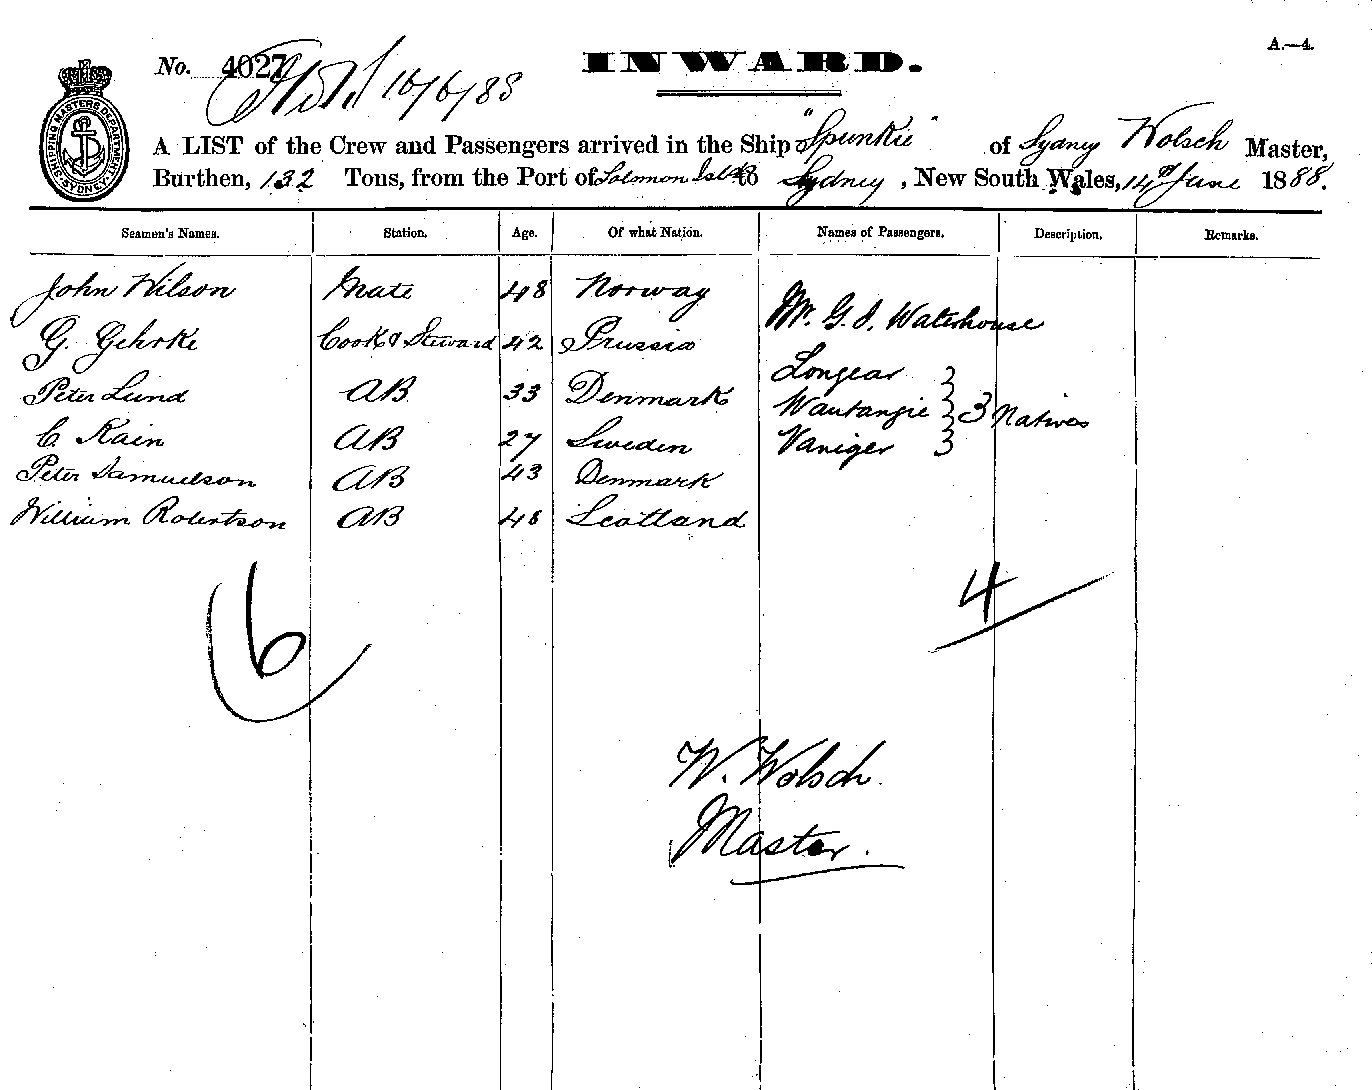 A.—4.
No. 4027 16/6/88
INWARD.
SHIPPING MASTERS DEPARTMENT. SYDNEY
A LIST of the Crew and Passengers arrived in the Ship "Spunkie" of Sydney Wolsch Master,
Burthen, 132 Tons, from the Port of Solomon to Sydney, New South Wales, 14th June 1888.
Seamen's Names. Station. Age. Of what Nation. Names of Passengers. Description. Remarks.
John Wilson Mate 48 Norway
Mr. G. J. Waterhouse
G. Gehrke Cook & Steward 42 Prussia
Longear
Peter Lund AB 33 Denmark
Wautangie 3 Natives
C. Kain AB 27 Sweden
Vaniger
Peter Samuelson AB 43 Denmark
William Robertson AB 48 Scotland
6
4
W. Wolsch.
Master.